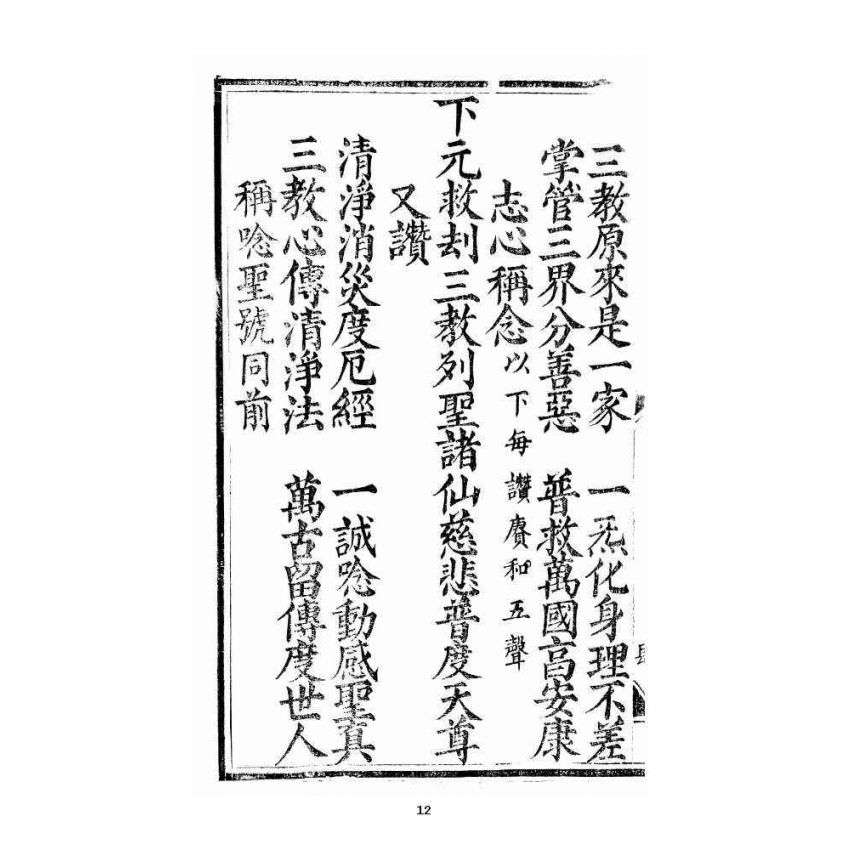 三教原來是一家 一炁化身理不差
掌管三界分善惡 普救萬國高安康
志心稱念以下每讚賡和五聲
下元救刦三教列聖諸仙慈悲普度天尊
又讚
清淨消災度厄經 一誠唸動感聖真
三教心傳清淨法 萬古留傳度世人
稱唸聖號同前
12